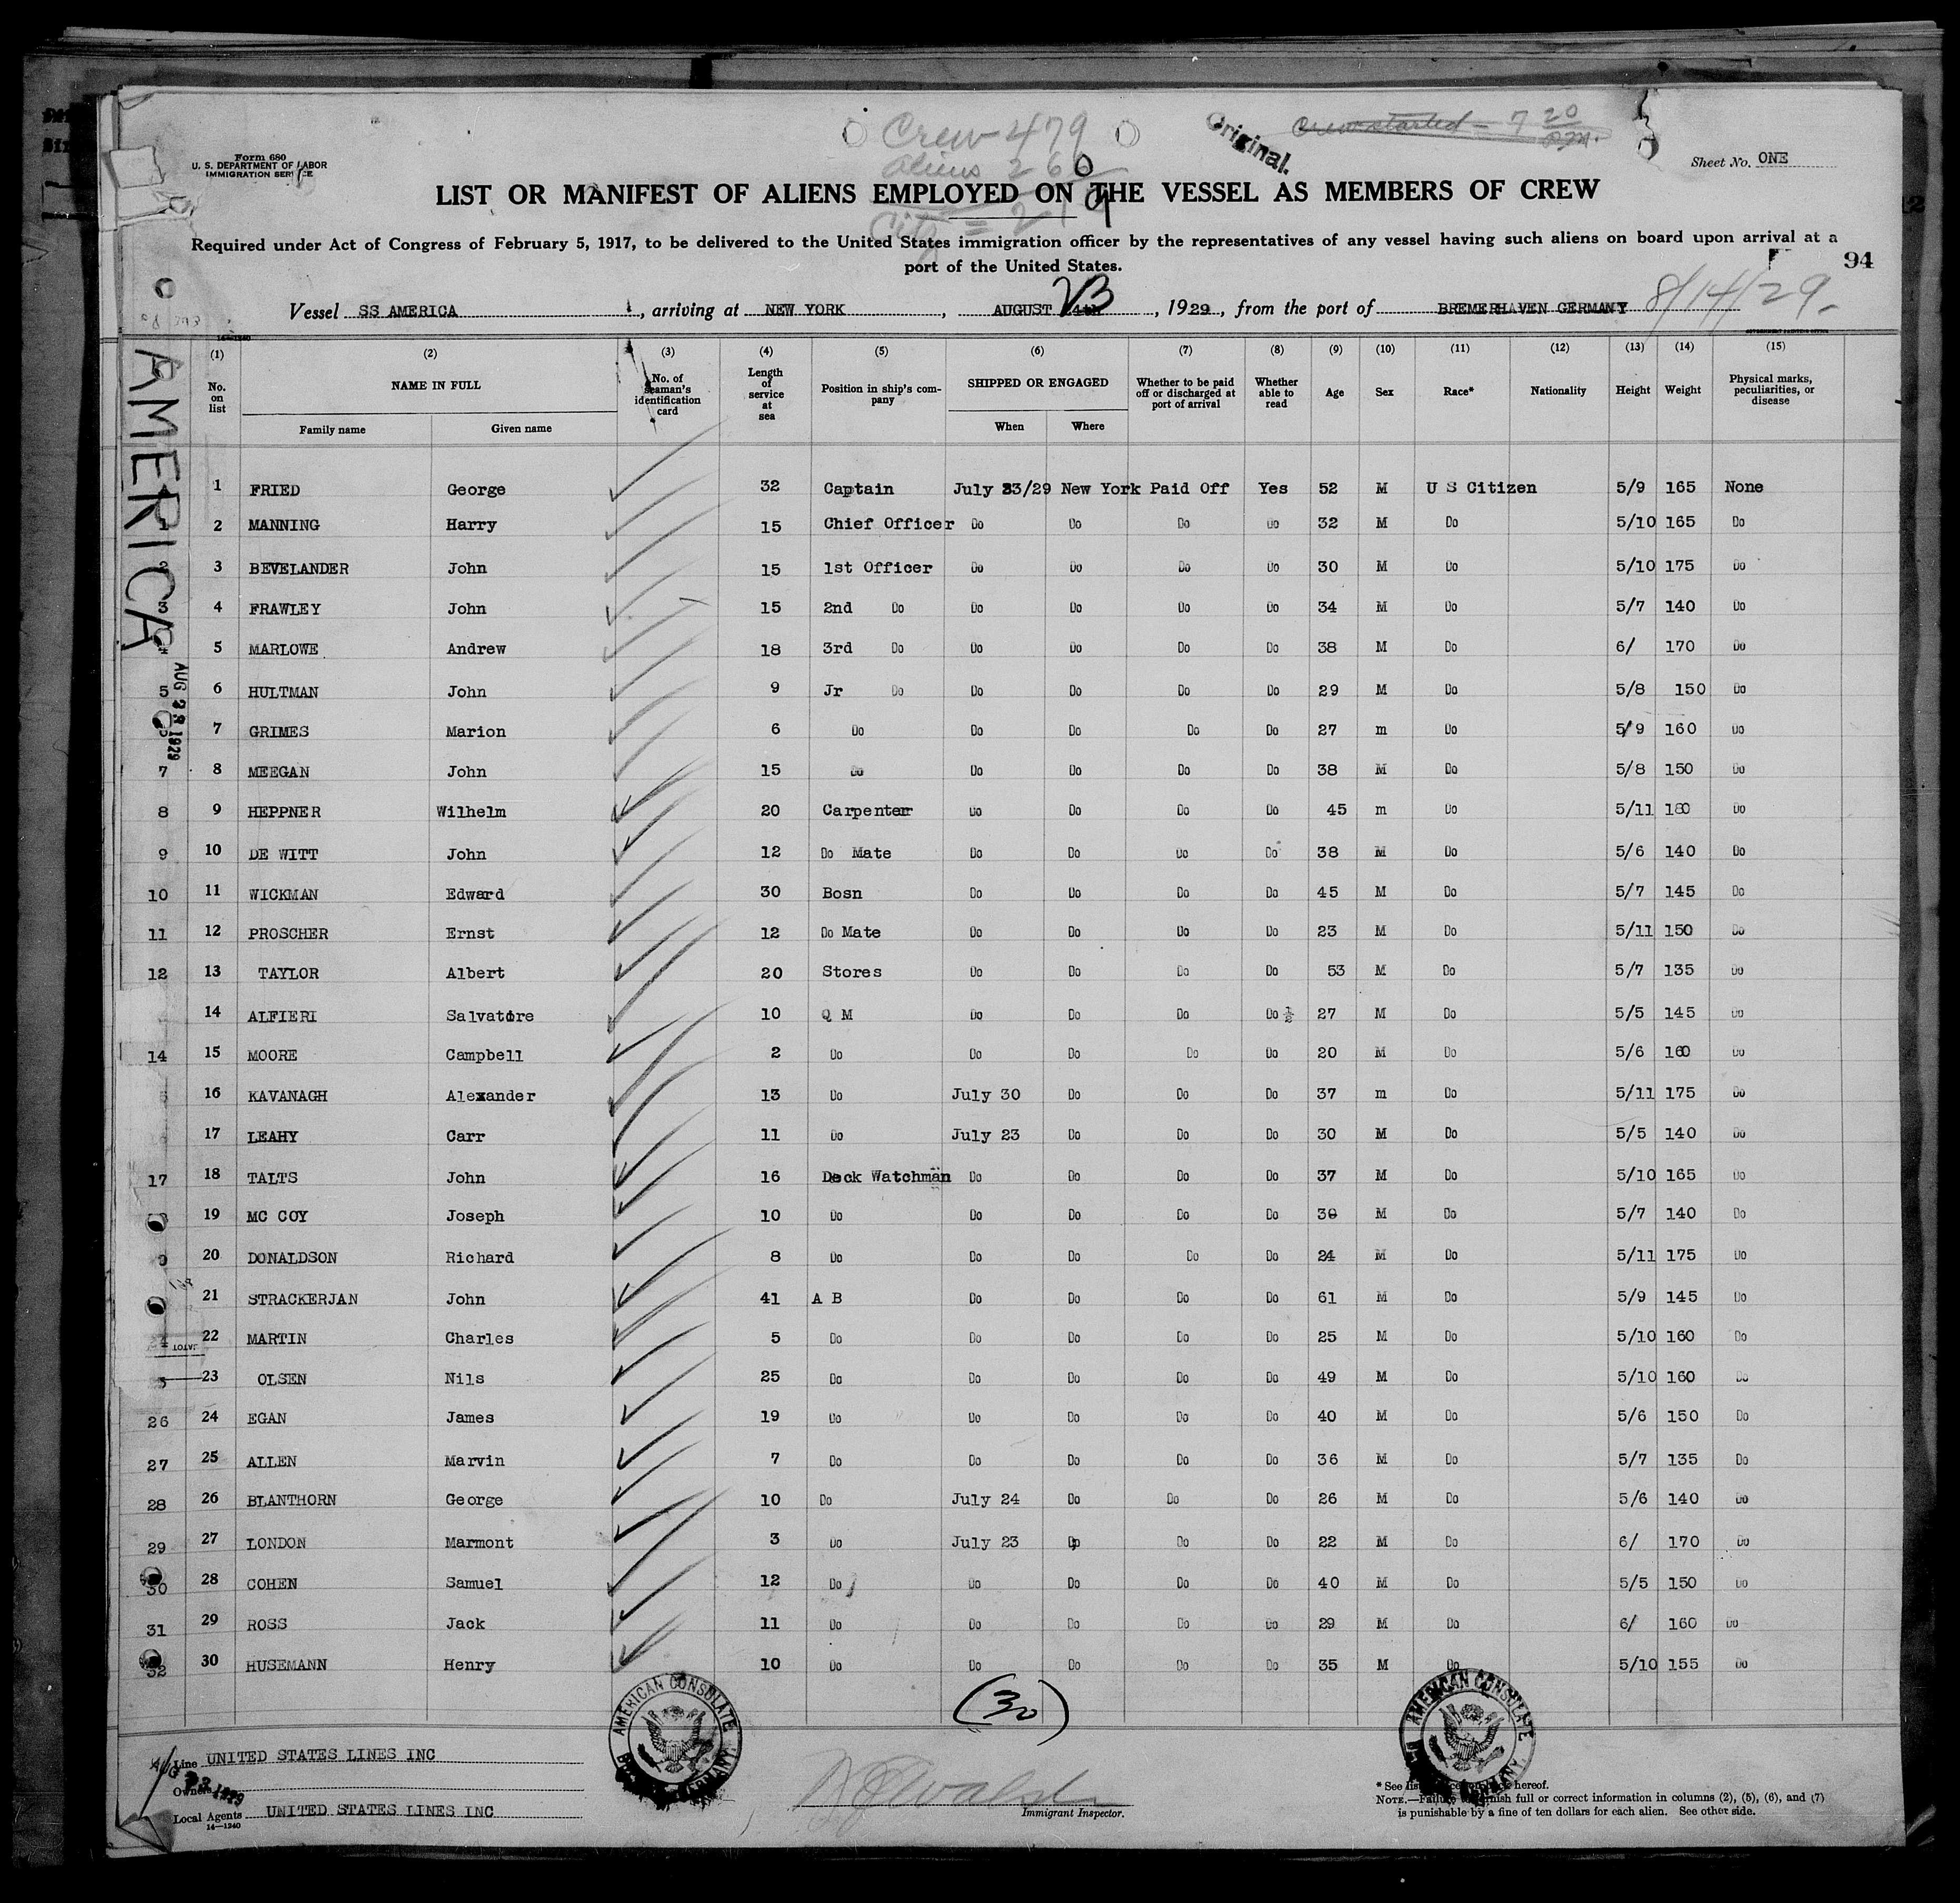 Crew 479
Aliens 260
Original.
Crew started - 7 20 P.M.
Form 680
U. S. DEPARTMENT OF LABOR
IMMIGRATION SERVICE
Sheet No. ONE
LIST OR MANIFEST OF ALIENS EMPLOYED ON THE VESSEL AS MEMBERS OF CREW
Required under Act of Congress of February 5, 1917, to be delivered to the United States immigration officer by the representatives of any vessel having such aliens on board upon arrival at a
port of the United States.
94
Vessel SS AMERICA, arriving at NEW YORK, AUGUST 23, 1929, from the port of BREMERHAVEN GERMANY 8/14/29
AMERICA
AUG 23 1929
(1) (2) (3) (4) (5) (6) (7) (8) (9) (10) (11) (12) (13) (14) (15)
No. on list NAME IN FULL No. of seaman's identification card Length of service at sea Position in ship's company SHIPPED OR ENGAGED Whether to be paid off or discharged at port of arrival Whether able to read Age Sex Race* Nationality Height Weight Physical marks, peculiarities, or disease
Family name Given name When Where
1 FRIED George 32 Captain July 23/29 New York Paid Off Yes 52 M U S Citizen 5/9 165 None
1 2 MANNING Harry 15 Chief Officer Do Do Do Do 32 M Do 5/10 165 Do
2 3 BEVELANDER John 15 1st Officer Do Do Do Do 30 M Do 5/10 175 Do
3 4 FRAWLEY John 15 2nd Do Do Do Do Do 34 M Do 5/7 140 Do
5 MARLOWE Andrew 18 3rd Do Do Do Do Do 38 M Do 6/ 170 Do
5 6 HULTMAN John 9 Jr Do Do Do Do Do 29 M Do 5/8 150 Do
7 GRIMES Marion 6 Do Do Do Do Do 27 m Do 5/9 160 Do
7 8 MEEGAN John 15 Do Do Do Do Do 38 M Do 5/8 150 Do
8 9 HEPPNER Wilhelm 20 Carpenter Do Do Do Do 45 m Do 5/11 180 Do
9 10 DE WITT John 12 Do Mate Do Do Do Do 38 M Do 5/6 140 Do
10 11 WICKMAN Edward 30 Bosn Do Do Do Do 45 M Do 5/7 145 Do
11 12 PROSCHER Ernst 12 Do Mate Do Do Do Do 23 M Do 5/11 150 Do
12 13 TAYLOR Albert 20 Stores Do Do Do Do 53 M Do 5/7 135 Do
14 ALFIERI Salvatore 10 Q M Do Do Do Do ½ 27 M Do 5/5 145 Do
14 15 MOORE Campbell 2 Do Do Do Do Do 20 M Do 5/6 160 Do
16 KAVANAGH Alexander 13 Do July 30 Do Do Do 37 m Do 5/11 175 Do
17 LEAHY Carr 11 Do July 23 Do Do Do 30 M Do 5/5 140 Do
17 18 TALTS John 16 Deck Watchman Do Do Do Do 37 M Do 5/10 165 Do
19 MC COY Joseph 10 Do Do Do Do Do 30 M Do 5/7 140 Do
20 DONALDSON Richard 8 Do Do Do Do Do 24 M Do 5/11 175 Do
21 STRACKERJAN John 41 A B Do Do Do Do 61 M Do 5/9 145 Do
24 22 MARTIN Charles 5 Do Do Do Do Do 25 M Do 5/10 160 Do
23 OLSEN Nils 25 Do Do Do Do Do 49 M Do 5/10 160 Do
26 24 EGAN James 19 Do Do Do Do Do 40 M Do 5/6 150 Do
27 25 ALLEN Marvin 7 Do Do Do Do Do 36 M Do 5/7 135 Do
28 26 BLANTHORN George 10 Do July 24 Do Do Do 26 M Do 5/6 140 Do
29 27 LONDON Marmont 3 Do July 23 Do Do Do 22 M Do 6/ 170 Do
30 28 COHEN Samuel 12 Do Do Do Do Do 40 M Do 5/5 150 Do
31 29 ROSS Jack 11 Do Do Do Do Do 29 M Do 6/ 160 Do
32 30 HUSEMANN Henry 10 Do Do Do Do Do 35 M Do 5/10 155 Do
(30)
AMERICAN CONSULATE GERMANY
AMERICAN CONSULATE GERMANY
Line UNITED STATES LINES INC
AUG 23 1929
Owners
Local Agents UNITED STATES LINES INC
14—1240
Immigrant Inspector.
* See list of races on back hereof.
NOTE.—Failure to furnish full or correct information in columns (2), (5), (6), and (7)
is punishable by a fine of ten dollars for each alien. See other side.